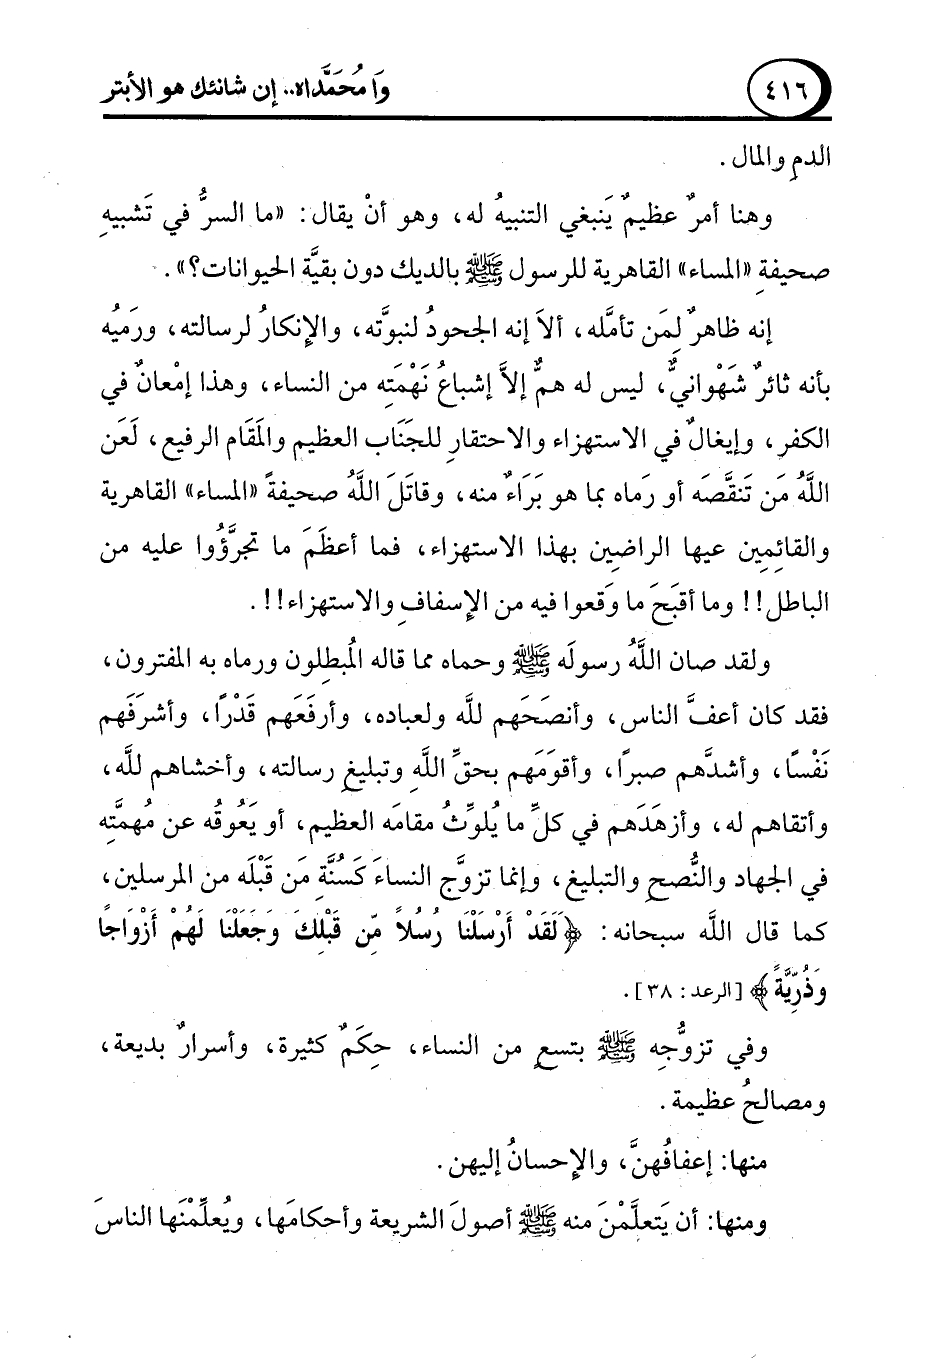 ٤١٦ وَا مُحَمَّدَاه.. إن شانئك هو الأبتر
الدمِ والمال .
وهنا أمرٌ عظيمٌ يَنبغي التنبيهُ له، وهو أنْ يقال: «ما السرُّ في تَشبيهِ
صحيفةِ «المساء» القاهرية للرسول ﷺ بالديك دون بقيَّة الحيوانات؟» .
إنه ظاهرٌ لِمَن تأمَّله، ألاَ إنه الجحودُ لنبوَّته، والإنكارُ لرسالته، ورَميُه
بأنه ثائرٌ شَهْوانيٌّ، ليس له همٌّ إلاَّ إشباعُ نَهْمَتِه من النساء، وهذا إمْعانٌ في
الكفر، وإيغالٌ في الاستهزاء والاحتقارِ للجَنَاب العظيم والمَقَام الرفيع، لَعَن
اللَّهُ مَن تَنقَّصَه أو رَماه بما هو بَرَاءٌ منه، وقاتَلَ اللَّهُ صحيفةَ «المساء» القاهرية
والقائِمِين عيها الراضِين بهذا الاستهزاء، فما أعظَمَ ما تجرَّؤُوا عليه من
الباطل!! وما أقبَحَ ما وَقعوا فيه من الإسفافِ والاستهزاء!! .
ولقد صان اللَّهُ رسولَه ﷺ وحماه مما قاله المُبطِلون ورماه به المفترون،
فقد كان أعفَّ الناس، وأنصَحَهم للَّه ولعباده، وأرفَعَهم قَدْرًا، وأشرَفَهم
نَفْسًا، وأشدَّهم صبرًا، وأقومَهم بحقِّ اللَّهِ وتبليغِ رسالته، وأخشاهم للَّه،
وأتقاهم له، وأزهَدَهم في كلِّ ما يُلوِّثُ مقامَه العظيم، أو يَعُوقُه عن مُهمَّتِه
في الجهاد والنُّصحِ والتبليغ، وإنما تزوَّج النساءَ كَسُنَّةِ مَن قَبْلَه من المرسلين،
كما قال اللَّه سبحانه: ﴿لَقَدْ أَرْسَلْنَا رُسُلاً مِّن قَبْلِكَ وَجَعَلْنَا لَهُمْ أَزْوَاجًا
وَذُرِّيَّةً﴾ [الرعد: ٣٨].
وفي تزوُّجِه ﷺ بتسعٍ من النساء، حِكَمٌ كثيرة، وأسرارٌ بديعة،
ومصالحُ عظيمة .
منها: إعفافُهنَّ، والإحسانُ إليهن .
ومنها: أن يَتعلَّمْنَ منه ﷺ أصولَ الشريعة وأحكامَها، ويُعلِّمْنَها الناسَ